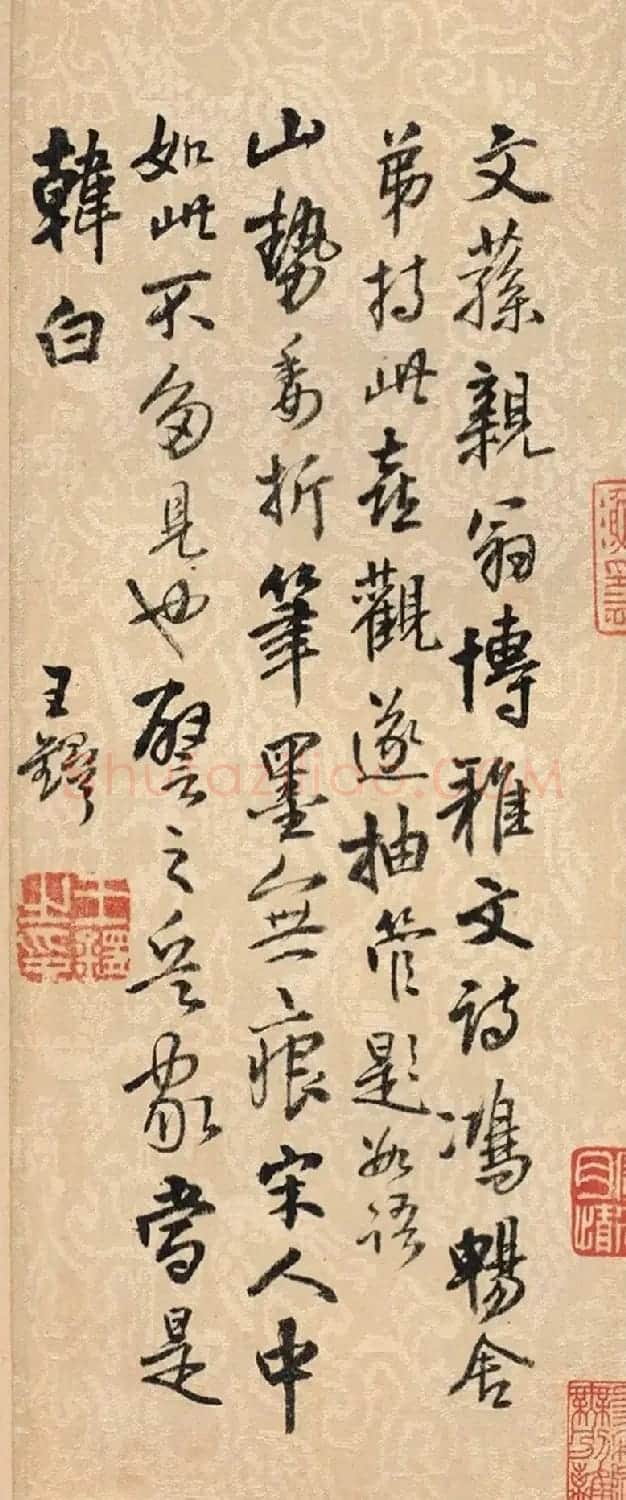 文蓀親翁博雅文詩鴻暢舍
弟持此堯觀遂抽管題數語
山勢委折筆墨無痕宋人中
如此不多見也譬之兵家當是
韓白
王鐸
shufazidao.com